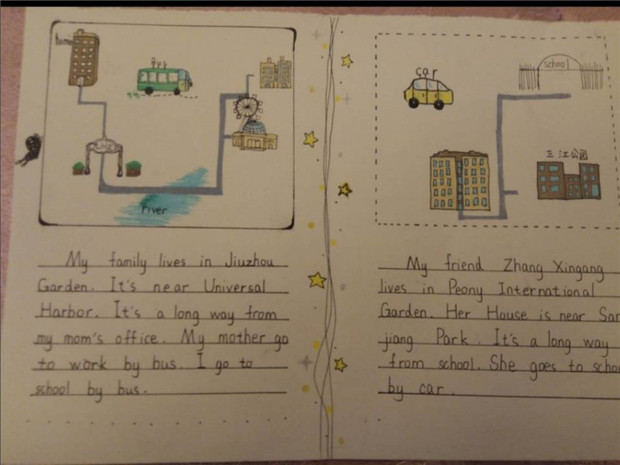 river
My family lives in Jiuzhou
Garden. It's near Universal
Harbor. It's a long way from
my mom's office. My mother go
to work by bus. I go to
school by bus.
car
school
三江公园
My friend Zhang Xingang
lives in Peony International
Garden. Her House is near San
jiang Park. It's a long way
from school. She goes to schoo
by car.